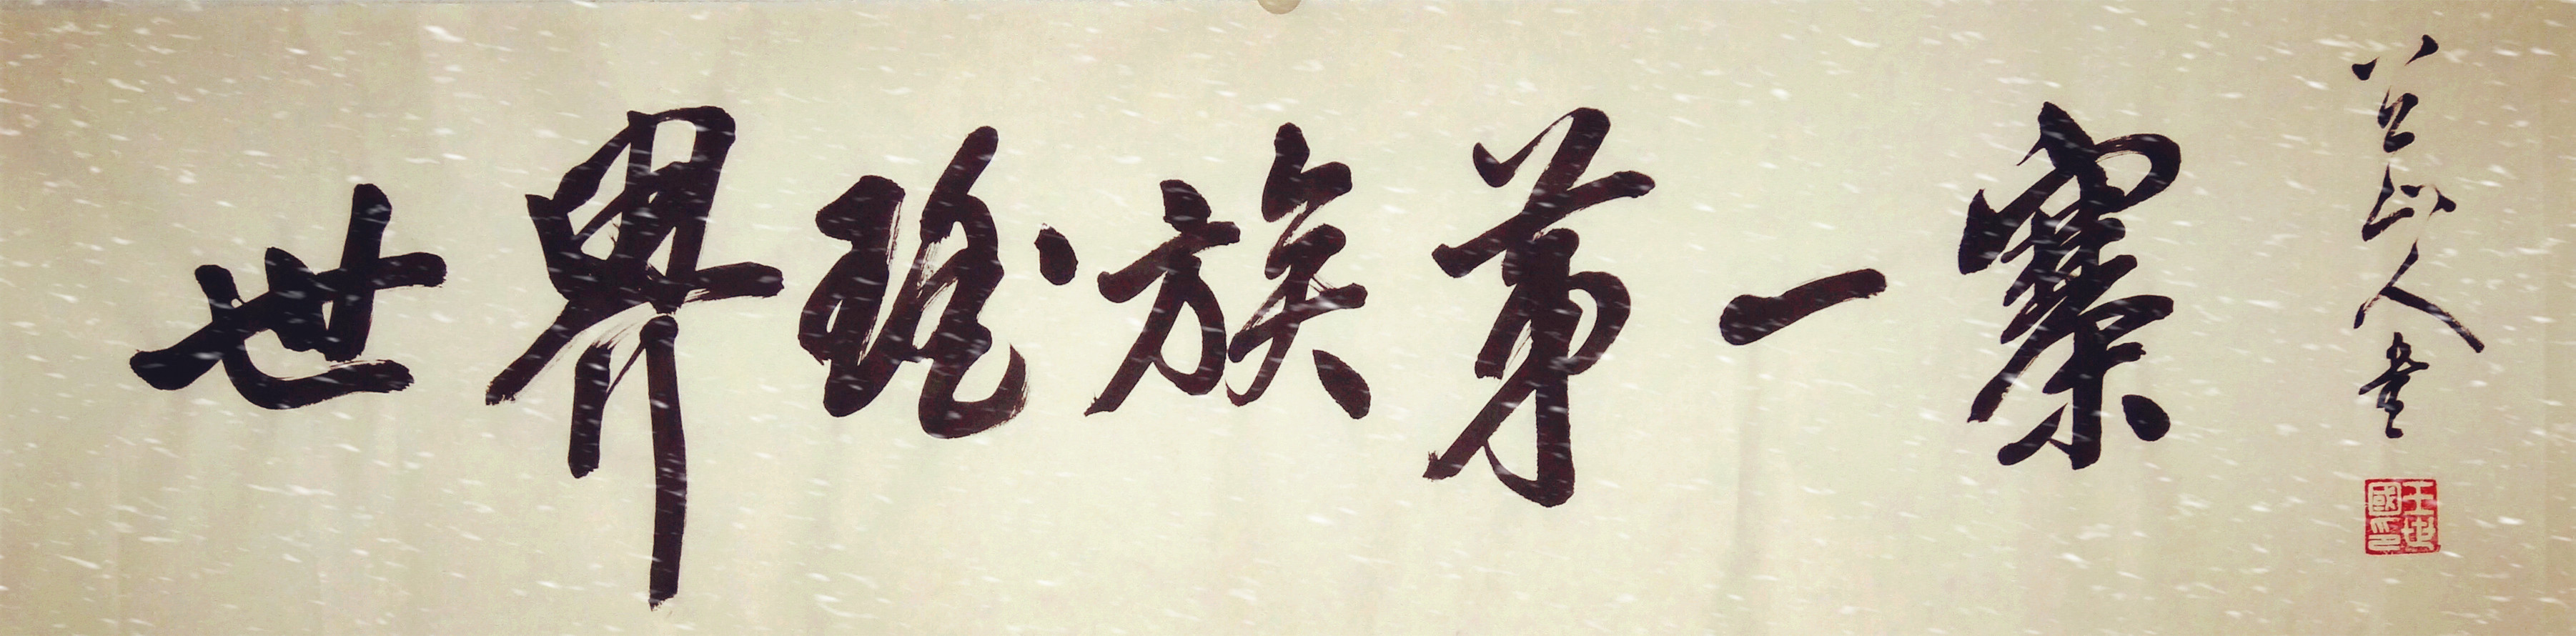 世界瑶族第一寨
谷山人書
王世國印